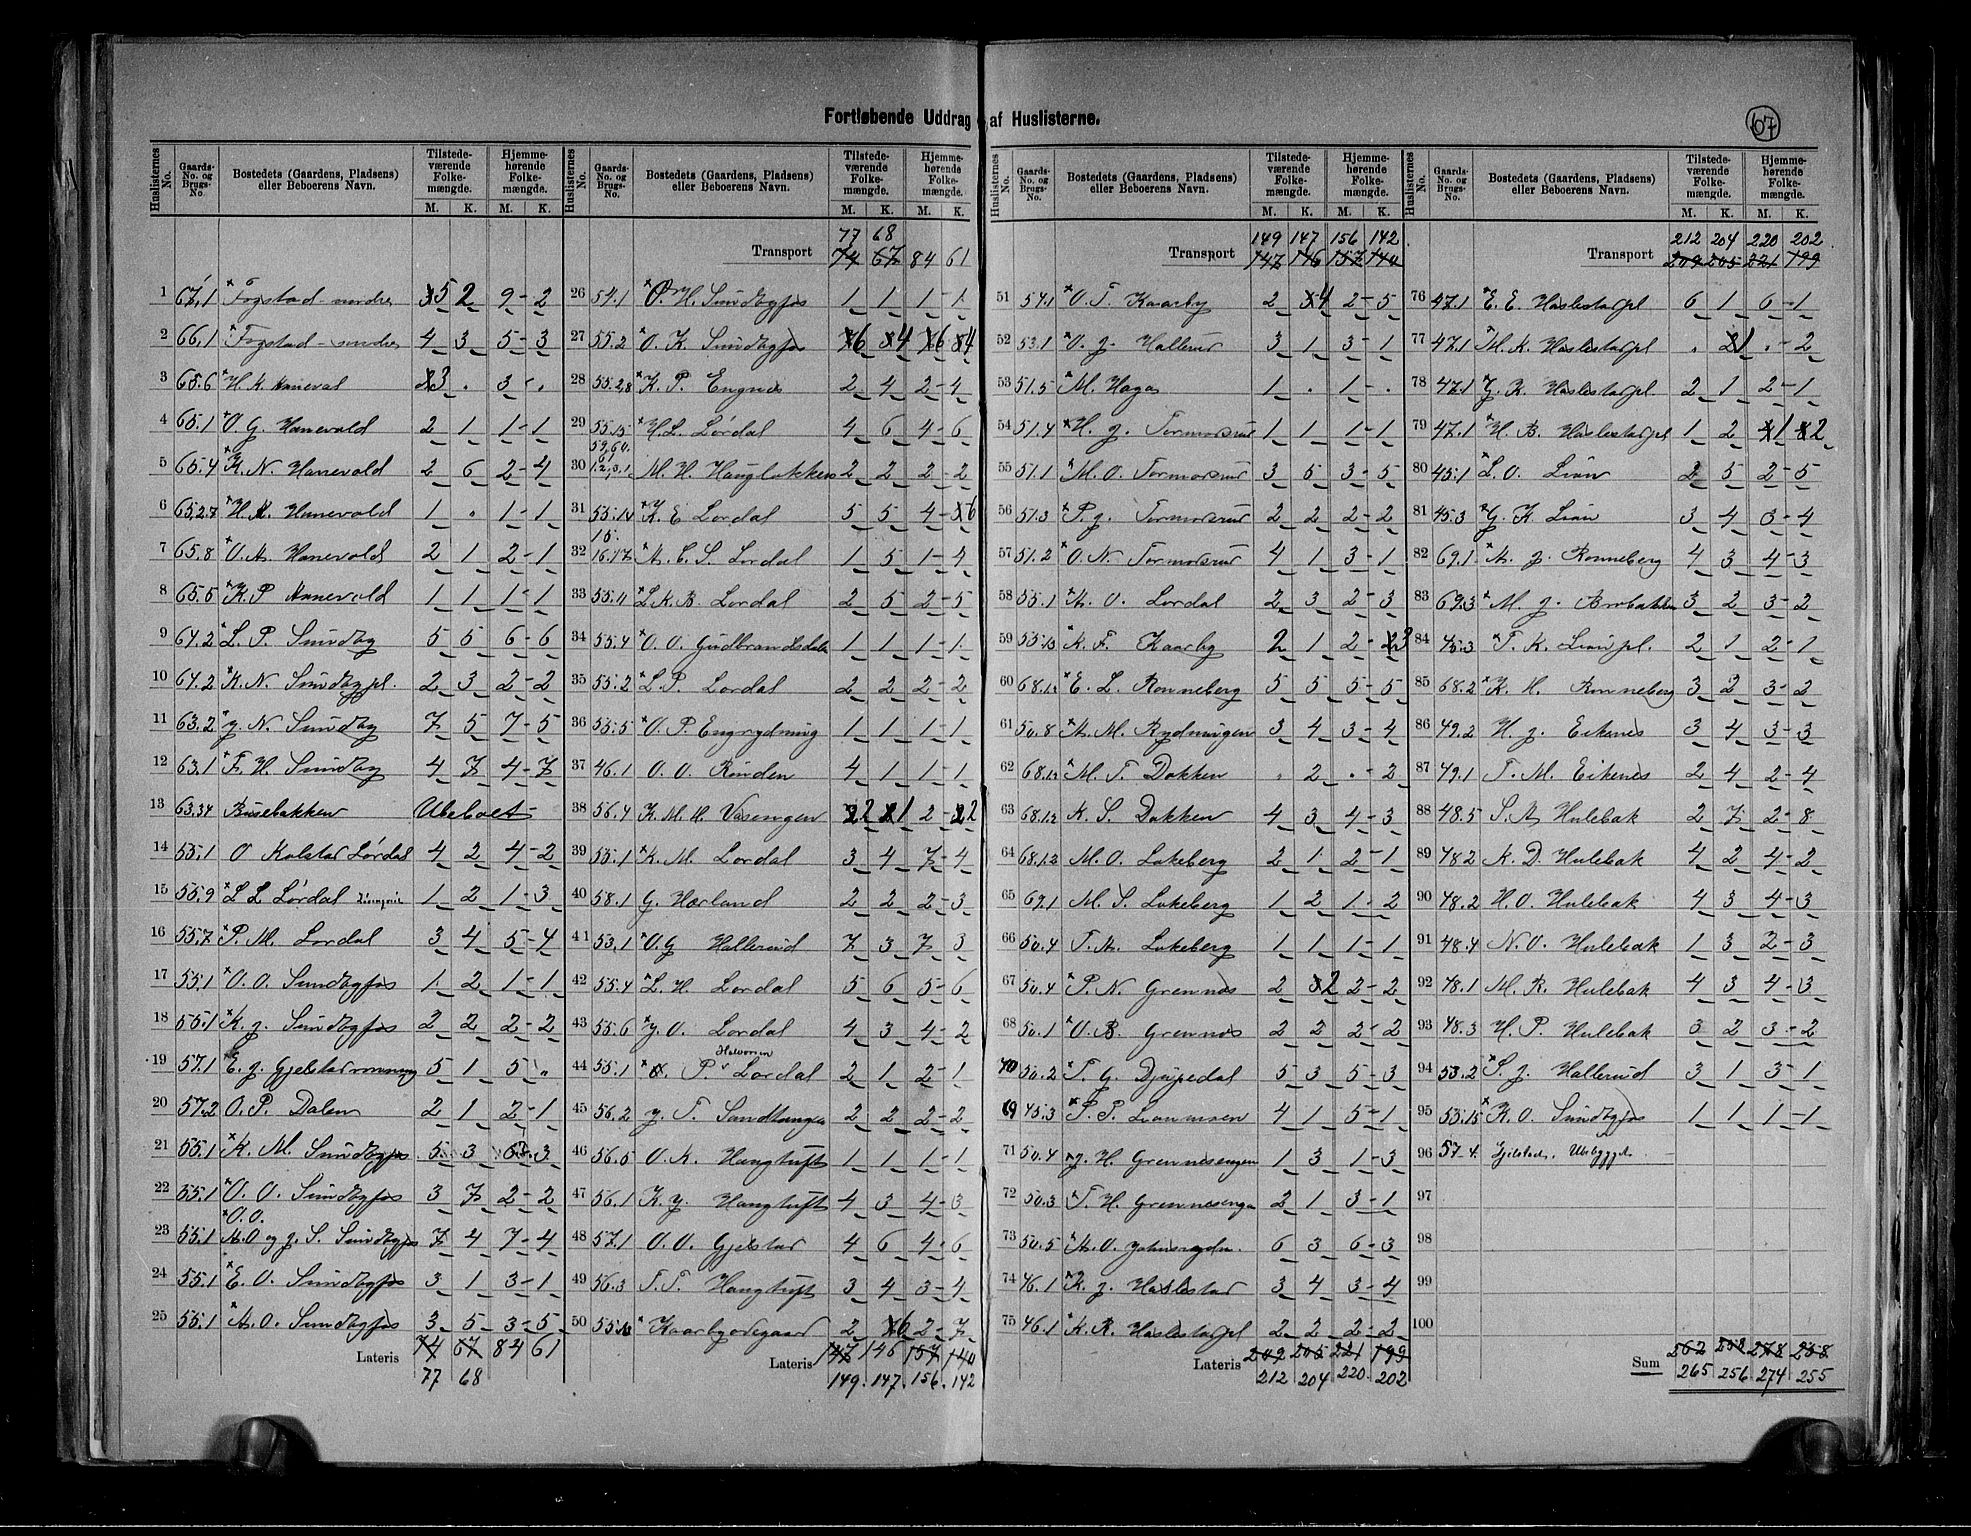 Fortløbende Uddrag af Huslisterne.
67
Huslisternes No. Gaards-No. og Brugs-No. Bostedets (Gaardens, Pladsens) eller Beboerens Navn. Tilstedeværende Folkemængde. M. K. Hjemmehørende Folkemængde. M. K.
1 67,1 Fogstad nordre 5 2 9 - 2
2 66,1 Fogstad - søndre 4 3 5 - 3
3 65.6 H. K. Haneval 3 . 3 - .
4 65.1 O. G. Hanevold 2 1 1 - 1
5 65.4 K. N. Hanevold 2 6 2 - 4
6 65,2.7 H. K. Hanevold 1 . 1 - 1
7 65.8 O. A. Hanevold 2 1 2 - 1
8 65.5 K. P. Hanevold 1 1 1 - 1
9 64.2 L. P. Sundby 5 5 6 - 6
10 64.2 K. N. Sundbypl. 2 3 2 - 2
11 63.2 J. N. Sundby 7 5 7 - 5
12 63.1 F. H. Sundby 4 7 4 - 7
13 63.34 Busebakken Ubeboet
14 55.1 O Kolstad Lørdal 4 2 4 - 2
15 55.9 L. L. Lørdal 1 2 1 - 3
16 55.7 P. M. Lørdal 3 4 5 - 4
17 55.1 O. O. Sundbyfos 1 2 1 - 1
18 55.1 K. J. Sundbyfos 2 2 2 - 2
19 57.1 E. J. Gjelstadrønning 5 1 5 .
20 57.2 O. P. Dalen 2 1 2 - 1
21 55.1 K. M. Sundbyfos 5 3 3
22 55.1 O. O. Sundbyfos 3 7 2 - 2
23 55.1 O.O. A.O og J. S. Sundbyfos 7 4 7 - 4
24 55.1 E. O. Sundbyfos 3 1 3 - 1
25 55.1 A. O. Sundbyfos 3 5 3 - 5
Lateris 74 67 84 61
77 68
Huslisternes No. Gaards-No. og Brugs-No. Bostedets (Gaardens, Pladsens) eller Beboerens Navn. Tilstedeværende Folkemængde. M. K. Hjemmehørende Folkemængde. M. K.
77 68
Transport 74 67 84 61
26 54.1 O. H. Sundbyfos 1 1 1 - 1
27 55.2 O. K. Sundbyfos 6 4 6 4
28 55.2,8 K. P. Engnes 2 4 2 - 4
29 55.15 H. L. Lørdal 4 6 4 - 6
30 M. H. Haugbakken 2 2 2 - 2
31 55.14 K. E. Lørdal 5 5 4 - 6
32 15. 16.17 A. E. S. Lørdal 1 5 1 - 4
33 55.11 L. K. B. Lørdal 2 5 2 - 5
34 55.4 O. O. Gudbrandsdalen 1 1 1 - 1
35 55.2 L. P. Lørdal 2 2 2 - 2
36 55.5 O. P. Engrydning 1 1 1 - 1
37 46.1 O. O. Rinden 4 1 1 - 1
38 56.4 K. M. H. Vasengen 2 1 2 - 2
39 55.1 K. M. Lørdal 3 4 7 - 4
40 58.1 G. Hærland 2 2 2 - 3
41 53.1 O. G Hallerud 7 3 7 3
42 55.4 L. H. Lørdal 5 6 5 - 6
43 55.6 J. O. Lørdal 4 3 4 - 2
44 55.1 P. Halvorsen Lørdal 2 1 2 - 1
45 56.2 J. T. Sandtangen 2 2 2 - 2
46 56.5 O. K. Haugtuft 1 1 1 - 1
47 56.1 K. J. Haugtuft 4 3 4 - 3
48 57.1 O. O. Gjelstad 4 6 4 - 6
49 56.3 T. T. Haugtuft 3 4 3 - 4
50 Kaarbyødegaard 2 6 2 - 7
Lateris 147 146 157 140
149. 147. 156. 142
Huslisternes No. Gaards-No. og Brugs-No. Bostedets (Gaardens, Pladsens) eller Beboerens Navn. Tilstedeværende Folkemængde. M. K. Hjemmehørende Folkemængde. M. K.
149 147 156 142
Transport 147 146 157 140
51 54.1 O. T. Kaarby 2 4 2 - 5
52 53.1 O. J. Hallerud 3 1 3 - 1
53 51.5 M. Haga 1 . 1 - .
54 51.4 H. J. Tormodsrud 1 1 1 - 1
55 51.1 M. O. Tormodsrud 3 5 3 - 5
56 51.3 P. J. Tormodsrud 2 2 2 - 2
57 51.2 O. N. Tormodsrud 4 1 3 - 1
58 55.1 A. O. Lørdal 2 3 2 - 3
59 55.13 K. F. Kaarby 2 1 2 - 3
60 68.12 E. L. Ronneberg 5 5 5 - 5
61 50.8 A. M. Rydningen 3 4 3 - 4
62 68.12 M. T. Dokken . 2 . - 2
63 68.12 K. S. Dokken 4 3 4 - 3
64 68.1.2 M. O. Lokeberg 2 1 2 - 1
65 69.1 M. S. Lokeberg 1 2 1 - 2
66 50.4 T. A. Lokeberg 1 1 1 - 1
67 50.4 P. N. Grennes 2 2 2 - 2
68 50.1 O. B. Grennes 2 2 2 - 2
70 50.2 T. G. Djupedal 5 3 5 - 3
69 45.3 P. P. Lianmoen 4 1 5 - 1
71 50.4 J. H. Grennesengen 1 3 1 - 3
72 50.3 T. H. Grennesengen 2 1 3 - 1
73 50.5 A. O. Johnsrydn. 6 3 6 - 3
74 46.1 K. J. Haslestad 3 4 3 - 4
75 46.1 K. R. Haslestadpl 2 2 2 - 2
Lateris 209 205 221 199
212 204 220 202
Huslisternes No. Gaards-No. og Brugs-No. Bostedets (Gaardens, Pladsens) eller Beboerens Navn. Tilstedeværende Folkemængde. M. K. Hjemmehørende Folkemængde. M. K.
212 204 220 202
Transport 209 205 221 199
76 47.1 E. E. Haslestadpl 6 1 6 - 1
77 47.1 M. K. Haslestadpl . 1 . - 2
78 47.1 G. K. Haslestadpl. 2 1 2 - 1
79 47.1 H. B. Haslestadpl 1 2 1 2
80 45.1 L. O. Lian 2 5 2 - 5
81 45.3 G. K. Lian 3 4 3 - 4
82 69.1 A. J. Ronneberg 4 3 4 - 3
83 69.3 M. J. Brobakken 3 2 3 - 2
84 45.3 T. K. Lianpl. 2 1 2 - 1
85 68.2 K. H. Ronneberg 3 2 3 - 2
86 49.2 H. J. Eikenes 3 4 3 - 3
87 49.1 T. M. Eikenes 2 4 2 - 4
88 48.5 S. A. Hulebak 2 7 2 - 8
89 48.2 K. D. Hulebak 4 2 4 - 2
90 48.2 H. O. Hulebak 4 3 4 - 3
91 48.4 N. O. Hulebak 1 3 2 - 3
92 48.1 M. R. Hulebak 4 3 4 - 3
93 48.3 H. P. Hulebak 3 2 3 - 2
94 53.2 S. J. Hallerud 3 1 3 - 1
95 55.15 K. O. Sundbyfos 1 1 1 - 1
96 57-4. Gjelstad, Ubebygget
97
98
99
100
Sum 262 258 278 258
265 256 274 255